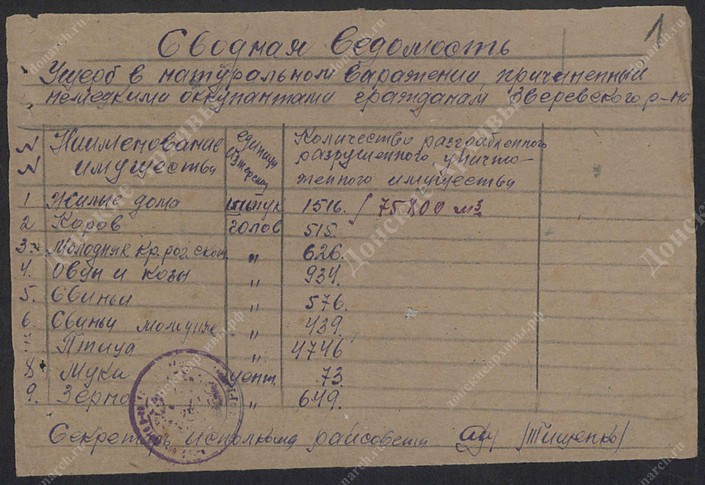 1
Сводная ведомость
Ущерб в натуральном выражении причиненный
немецкими оккупантами гражданам Зверевского р-на
N N Наименование имущества
единица измерения
Количество разграбленного
разрушенного уничто-
женного имущества
1 Жилые дома штук 1516. / 75800 м3
2 Коров голов 515.
3. Молодняк кр. рог. скот " 626.
4. Овцы и козы " 934.
5. Свиньи " 576.
6. Свиньи молодняк " 439.
7 Птица " 4746
8. Муки цент. 73.
9. Зерно " 649.
Секретарь исполкома райсовета /Тищенко/